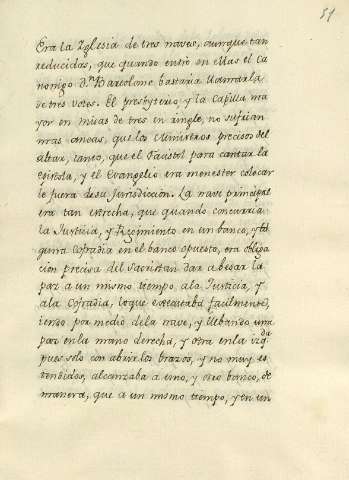 51
Era la Yglesia de tres naves, aunque tan
reducidas, que quando entrò en ellas el Ca
nonigo D.n Bartolome bastaria llamarla
de tres votes. El presbyterio, y la Capilla ma
yor en misas de tres en ringle, no sufrian
mas que los Ministros precisos del
altar, tanto, que el Facistol para cantar la
Epistola, y el Evangelio era menester colocar
le fuera de su Jurisdicción. La nave principal
era tan estrecha, que quando concurria
la Justicia, y Regimiento en un banco, y al
guna Cofradia en el banco opuesto, era obliga
cion precisa del Sacristan dar a besar la
paz a un mismo tiempo, a la Justicia, y
a la Cofradia, lo que executaba facilmente,
iendo por medio de la nave, y llebando una
paz en la mano derecha, y otra en la yzq.da
pues solo con abrir los brazos, y no muy es
tendidos, alcanzaba a uno, y otro banco, de
manera, que a un mismo tiempo, y en un